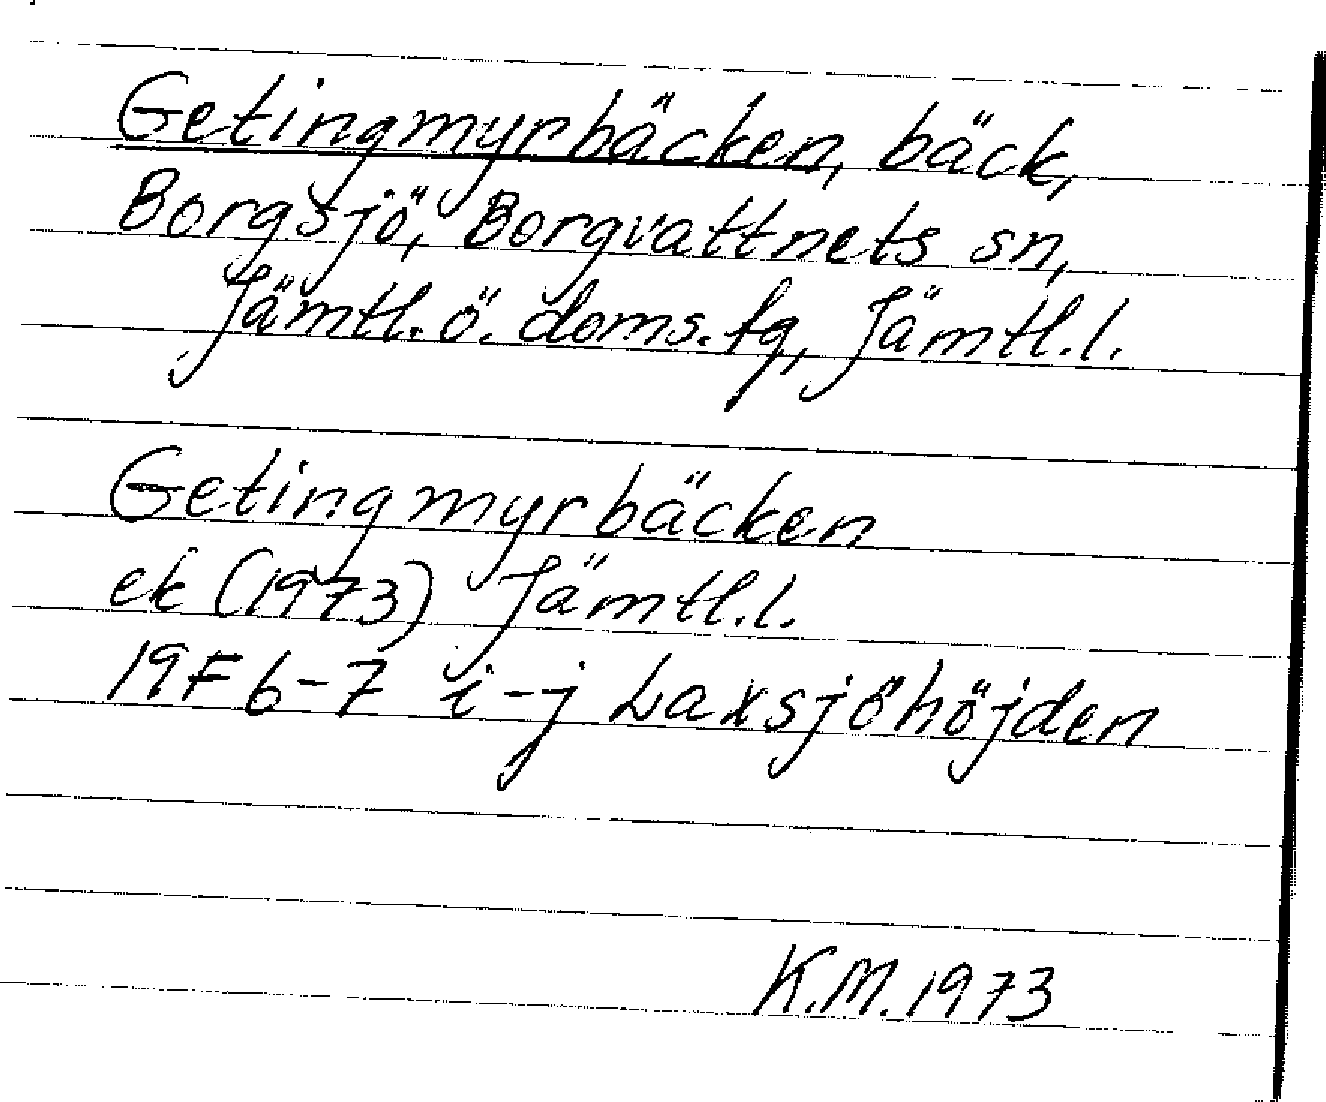 Getingmyrbäcken, bäck,
Borgsjö, Borgvattnets sn,
Jämtl. ö. doms. fg, Jämtl. l.
Getingmyrbäcken
ek (1973) Jämtl. l.
19F 6-7 i-j Laxsjöhöjden
K.M. 1973